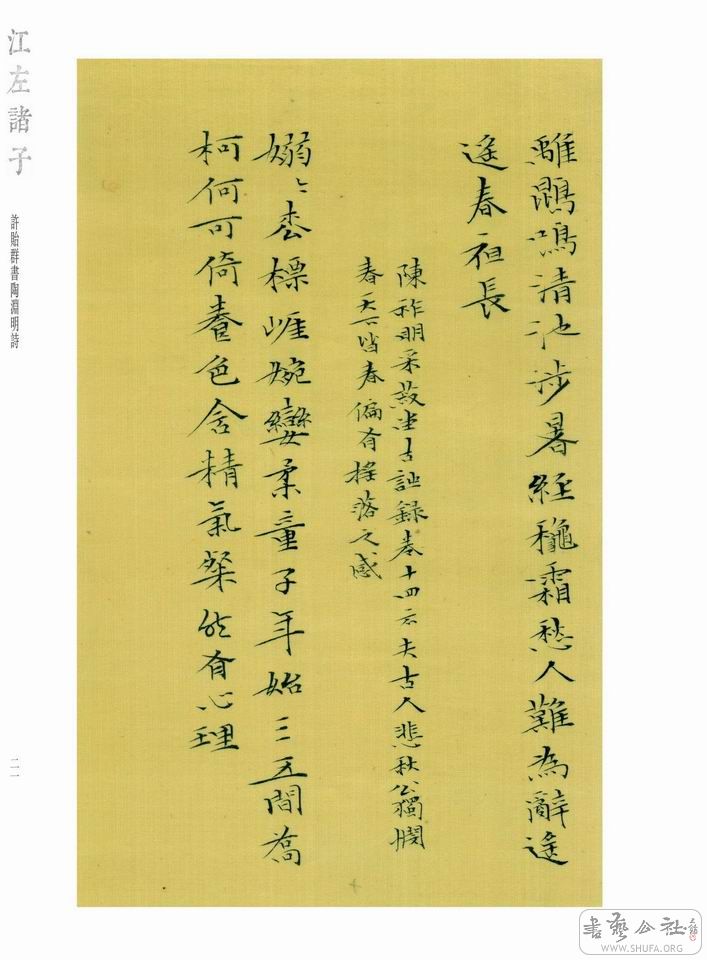 江左諸子
許貽群書陶淵明詩
二一
離鵾鳴清池涉暑經穐霜愁人難為辭遙
遙春夜長
陳祚明采菽堂古詩録卷十四云夫古人悲秋公獨閔
春當春偏有搖落之感
嫋〻松標崖婉孌柔童子年始三五間喬
柯何可倚養色含精氣粲然有心理
書藝公社
WWW.SHUFA.ORG